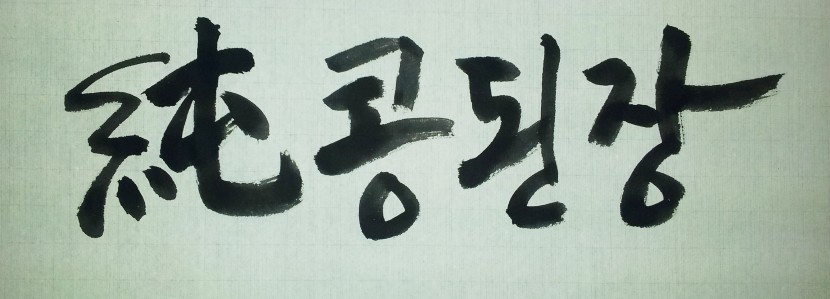 純콩된장